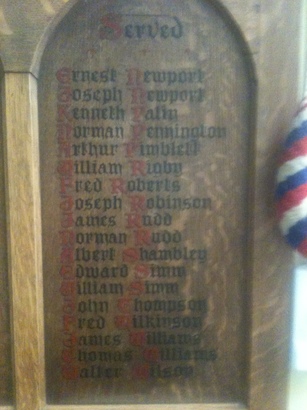 Served
Ernest Newport
Joseph Newport
Kenneth Patin
Norman Pennington
Arthur Pimblett
William Rigby
Fred Roberts
Joseph Robinson
James Rudd
Norman Rudd
Albert Shambley
Edward Simm
William Simm
John Thompson
Fred Wilkinson
James Williams
Thomas Williams
Walter Wilson